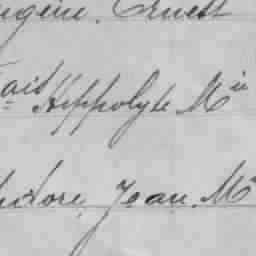 ugène. Ernest
ais Hippolyte Mie
hidore, Jean. M